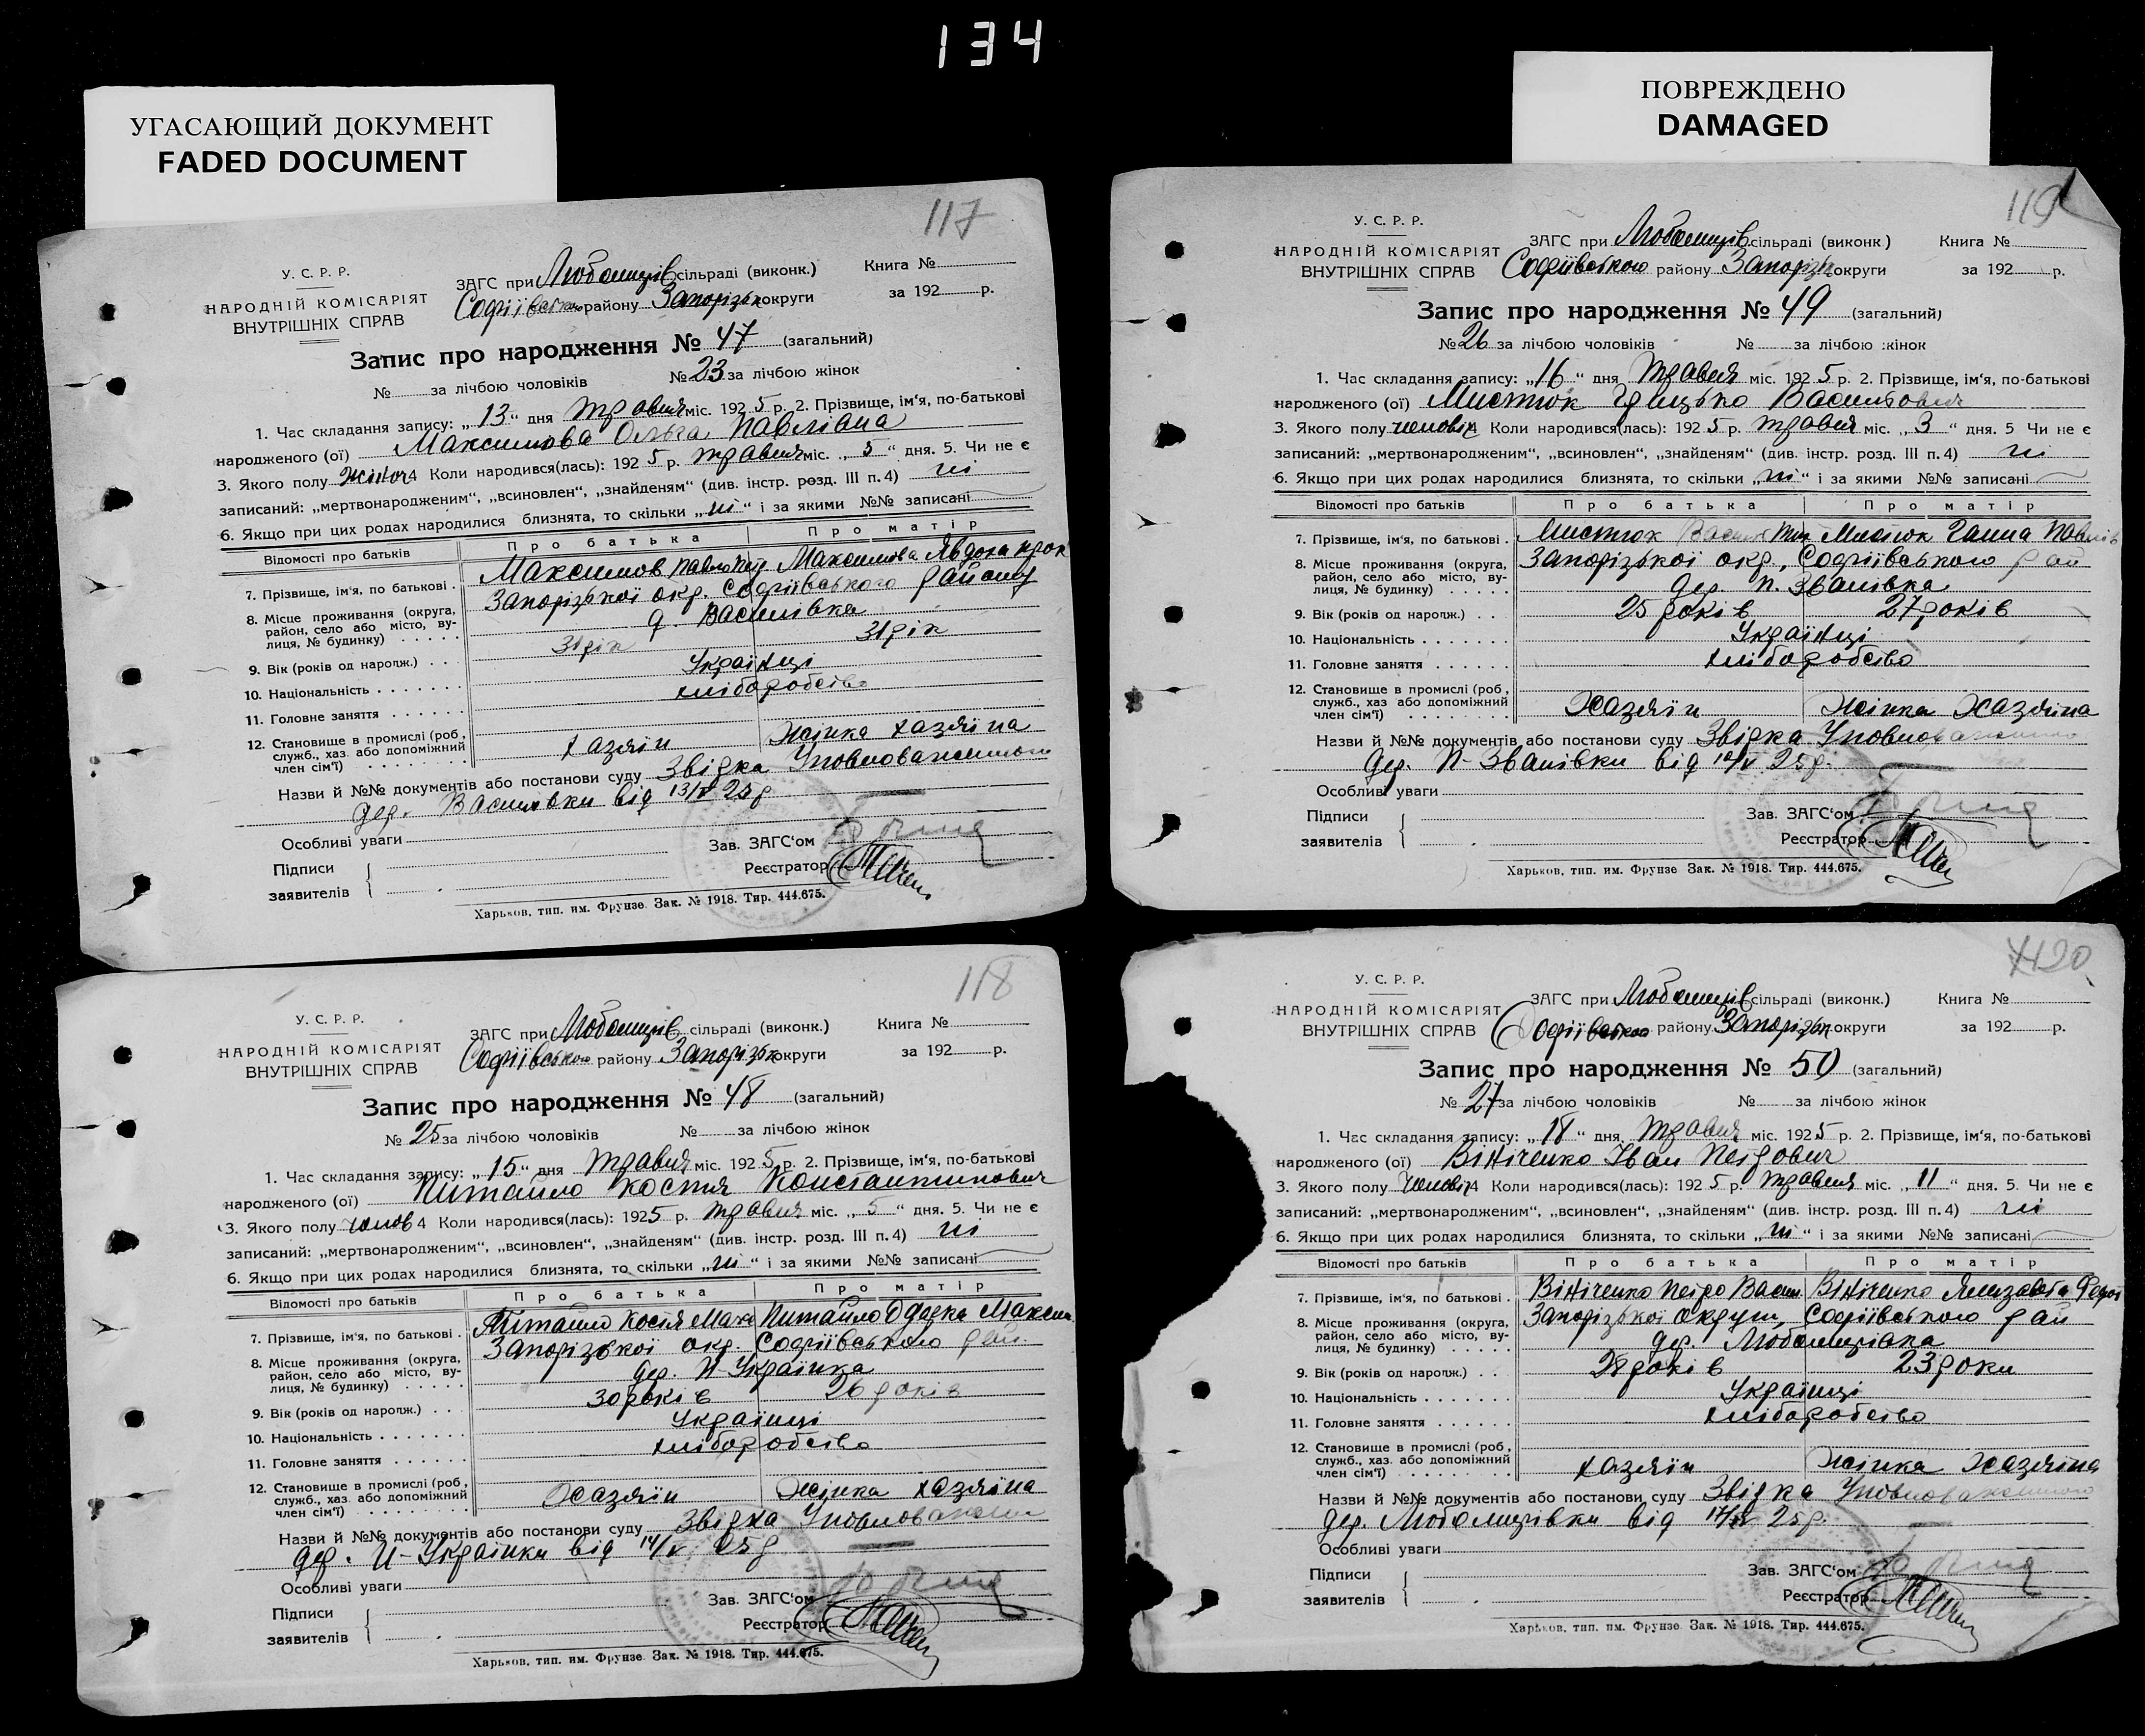 134
УГАСАЮЩИЙ ДОКУМЕНТ
FADED DOCUMENT
ПОВРЕЖДЕНО
DAMAGED
117
У. С. Р. Р.
НАРОДНІЙ КОМІСАРІЯТ
ВНУТРІШНІХ СПРАВ
ЗАГС при Любомирів сільраді (виконк.) Книга №
Софіївськ району Запорізьк округи за 192 р.
Запис про народження № 47 (загальний)
№ за лічбою чоловіків № 23 за лічбою жінок
1. Час складання запису: „13“ дня травня міс. 1925 р. 2. Прізвище, ім‘я, по-батькові
народженого (ої) Максимова Ольга Павлівна
3. Якого полу жіноч 4 Коли народився(лась): 1925 р. травня міс. „5“ дня. 5. Чи не є
записаний: „мертвонародженим“, „всиновлен“, „знайденям“ (див. інстр. розд. III п. 4) ні
6. Якщо при цих родах народилися близнята, то скільки „ні“ і за якими №№ записані
Відомості про батьків Про батька Про матір
7. Прізвище, ім‘я, по-батькові . Максимов Павло Максимова Явдоха Прок
8. Місце проживання (округа, район, село або місто, вулиця, № будинку) Запорізької окр. Софіївського району
д. Василівка
9. Вік (років од наролж.) 31 рік 31 рік
10. Національність Українці
11. Головне заняття хліборобство
12. Становище в промислі (роб, служб., хаз. або допоміжний член сім‘ї) хазяїн жінка хазяїна
Назви й №№ документів або постанови суду Звідка Уповноваженого
дер. Василівки від 13/V 25 р
Особливі уваги
Підписи
заявителів
Зав. ЗАГС‘ом
Реєстратор
Харьков, тип. им. Фрунзе. Зак. № 1918. Тир. 444.675.
118
У. С. Р. Р.
НАРОДНІЙ КОМІСАРІЯТ
ВНУТРІШНІХ СПРАВ
ЗАГС при Любомирів сільраді (виконк.) Книга №
Софіївською району Запорізьк округи за 192 р.
Запис про народження № 48 (загальний)
№ 25 за лічбою чоловіків № за лічбою жінок
1. Час складання запису: „15“ дня травня міс. 1925 р. 2. Прізвище, ім‘я, по-батькові
народженого (ої) Питайло Костя Константинович
3. Якого полу чолов 4 Коли народився(лась): 1925 р. травня міс. „5“ дня. 5. Чи не є
записаний: „мертвонародженим“, „всиновлен“, „знайденям“ (див. інстр. розд. III п. 4) ні
6. Якщо при цих родах народилися близнята, то скільки „ні“ і за якими №№ записані
Відомості про батьків Про батька Про матір
7. Прізвище, ім‘я, по-батькові . Питайло Костя Питайло Одарка Максим
8. Місце проживання (округа, район, село або місто, вулиця, № будинку) Запорізької окр. Софіївського рай.
дер. Н-Українка
9. Вік (років од наролж.) 30 років 26 років
10. Національність Українці
11. Головне заняття хліборобство
12. Становище в промислі (роб, служб., хаз. або допоміжний член сім‘ї) Хазяїн Жінка хазяїна
Назви й №№ документів або постанови суду Звідка Уповноважен
дер. Н-Українки від 14/V 25 р
Особливі уваги
Підписи
заявителів
Зав. ЗАГС‘ом
Реєстратор
Харьков, тип. им. Фрунзе. Зак. № 1918. Тир. 444.675.
119
У. С. Р. Р.
НАРОДНІЙ КОМІСАРІЯТ
ВНУТРІШНІХ СПРАВ
ЗАГС при Любомирів сільраді (виконк) Книга №
Софіївською району Запорізь округи за 192 р.
Запис про народження № 49 (загальний)
№ 26 за лічбою чоловіків № за лічбою жінок
1. Час складання запису: „16“ дня травня міс. 1925 р. 2. Прізвище, ім‘я, по-батькові
народженого (ої) Мистюк Грицько Васильович
3. Якого полу чоловіч 4 Коли народився(лась): 1925 р. травня міс. „3“ дня. 5 Чи не є
записаний: „мертвонародженим“, „всиновлен“, „знайденям“ (див. інстр. розд. III п. 4) ні
6. Якщо при цих родах народилися близнята, то скільки „ні“ і за якими №№ записані
Відомості про батьків Про батька Про матір
7. Прізвище, ім‘я, по-батькові . Мистюк Васил Мистюк Ганна Павлів
8. Місце проживання (округа, район, село або місто, вулиця, № будинку) Запорізької окр., Софіївського рай
дер. П. Званівка
9. Вік (років од наролж.) 25 років 27 років
10. Національність Українці
11. Головне заняття хліборобство
12. Становище в промислі (роб, служб., хаз або допоміжний член сім‘ї) Хазяїн Жінка Хазяїна
Назви й №№ документів або постанови суду Звідка Уповноваженого
дер. П-Званівки від 25 р.
Особливі уваги
Підписи
заявителів
Зав. ЗАГС‘ом
Реєстратор
Харьков, тип. им. Фрунзе Зак. № 1918. Тир. 444.675.
120
У. С. Р. Р.
НАРОДНІЙ КОМІСАРІЯТ
ВНУТРІШНІХ СПРАВ
ЗАГС при Любомирів сільраді (виконк.) Книга №
Софіївською району Запорізьк округи за 192 р.
Запис про народження № 50 (загальний)
№ 27 за лічбою чоловіків № за лічбою жінок
1. Час складання запису: „18“ дня травня міс. 1925 р. 2. Прізвище, ім‘я, по-батькові
народженого (ої) Вініченко Іван Петрович
3. Якого полу чоловіч 4 Коли народився(лась): 1925 р. травня міс. „11“ дня. 5. Чи не є
записаний: „мертвонародженим“, „всиновлен“, „знайденям“ (див. інстр. розд. III п. 4) ні
6. Якщо при цих родах народилися близнята, то скільки „ні“ і за якими №№ записані
Відомості про батьків Про батька Про матір
7. Прізвище, ім‘я, по-батькові . Вініченко Петро Васил. Вініченко Ялизавета Федот
8. Місце проживання (округа, район, село або місто, вулиця, № будинку) Запорізької округи, Софіївського рай
дер. Любомирівка
9. Вік (років од наролж.) 28 років 23 роки
10. Національність Українці
11. Головне заняття хліборобство
12. Становище в промислі (роб, служб., хаз. або допоміжний член сім‘ї) хазяїн Жінка Хазяїна
Назви й №№ документів або постанови суду Звідка Уповноваженого
дер. Любомирівки від 25 р.
Особливі уваги
Підписи
заявителів
Зав. ЗАГС‘ом
Реєстратор
Харьков, тип. им. Фрунзе Зак. № 1918. Тир. 444.675.